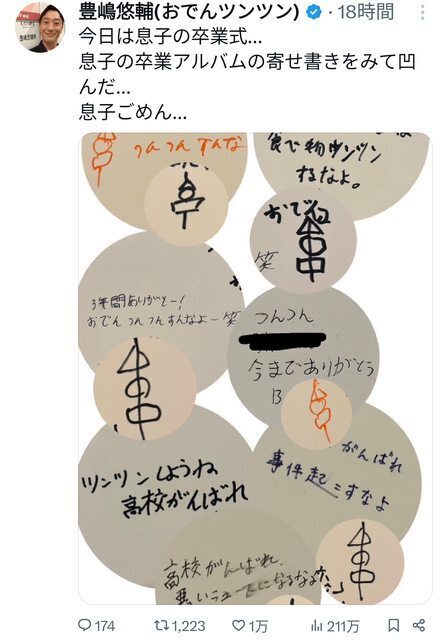 豊嶋悠輔(おでんツンツン) · 18時間
今日は息子の卒業式...
息子の卒業アルバムの寄せ書きをみて凹
んだ...
息子ごめん...
つんつんすんな
食べ物ツンツン
するなよ。
おでん
笑
3年間ありがとー!
おでんつんつんすんなよー笑
つんつん
今までありがとう
B
ツンツンしようね
高校がんばれ
がんばれ
事件起こすなよ
高校がんばれ。
悪いニュースになるなよ
174
1,223
1万
211万